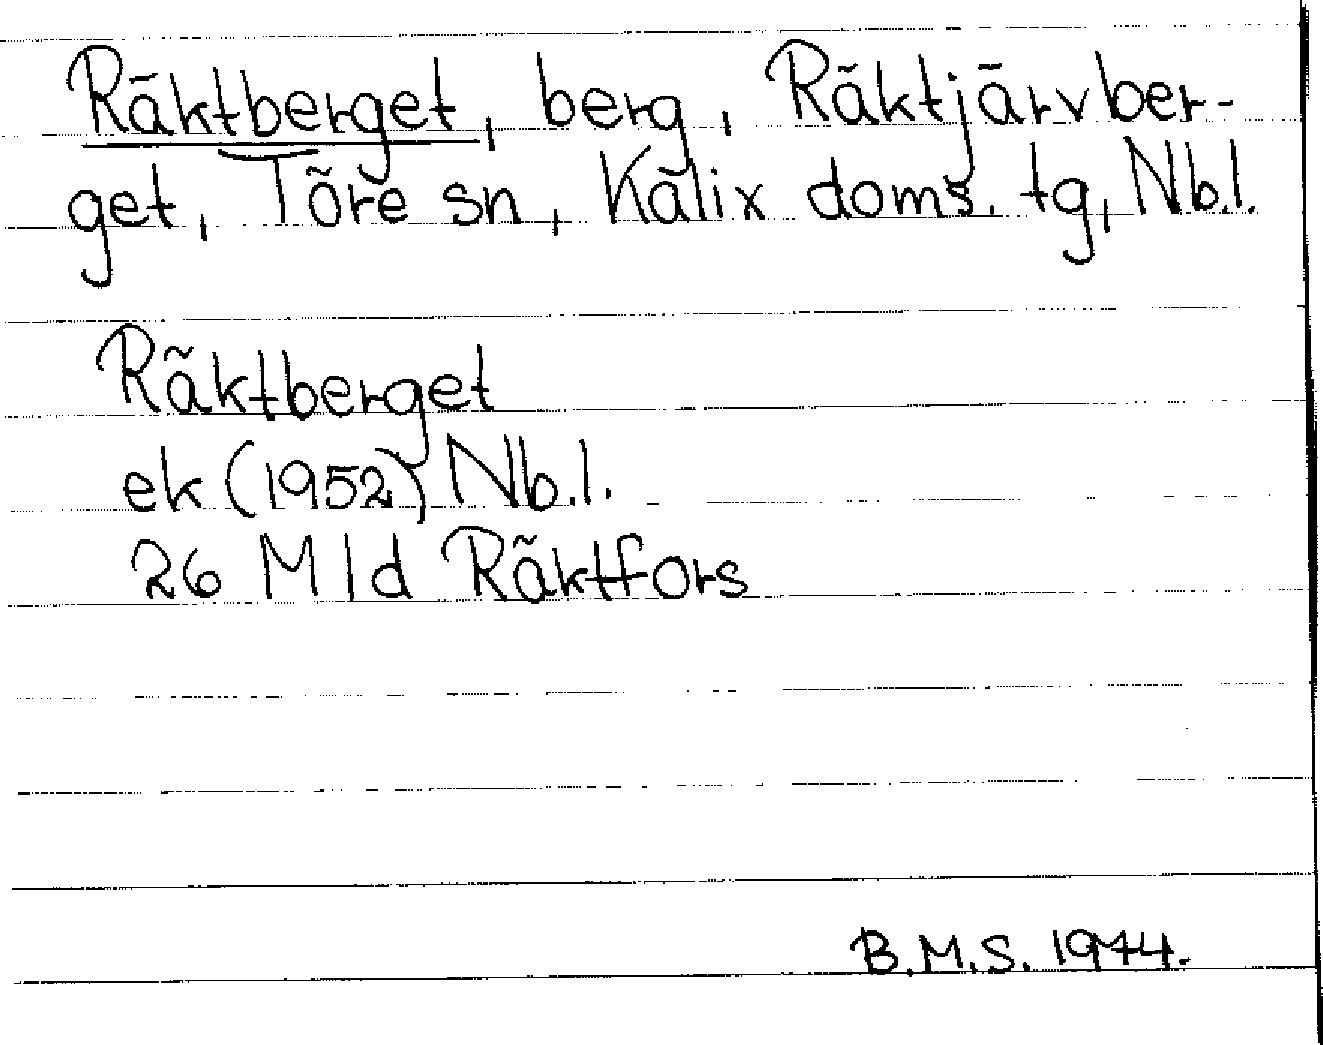 Räktberget, berg, Räktjärvber-
get, Töre sn, Kalix doms. tg, Nb.l.
Räktberget
ek (1952) Nb.l.
26 M 1d Räktfors
B.M.S. 1974.